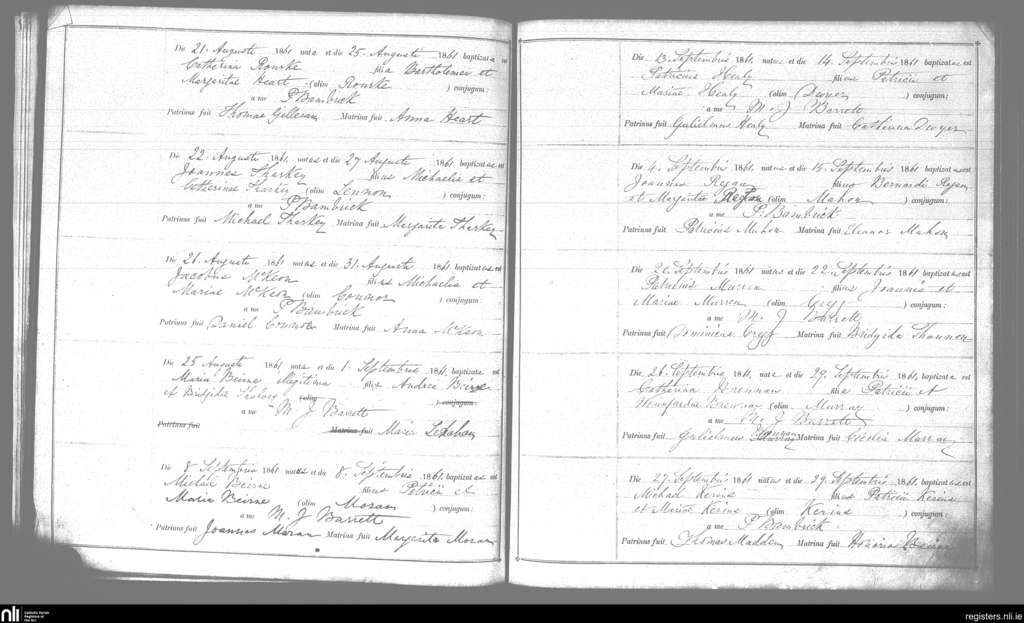 Die 21. Augusti 1861 nata et die 25. Augusti 1861 baptizata est
Catherina Rourke filia Bartholomei et
Margarita Heart (olim Rourke ) conjugum:
a me P Bambrick
Patrinus fuit Thomas Matrina fuit Anna Heart
Die 22. Augusti 1861, natus et die 27 Augusti 1861 baptizatus est
Joannes Sharkey filius Michaelis et
Catherinae Sharkey (olim Lennon ) conjugum:
a me P Bambrick
Patrinus fuit Michael Sharkey Matrina fuit Margarita Sharkey
Die 21. Augusti 1861 natus et die 31. Augusti 1861 baptizatus est
Jacobus McKeon filius Michaelis et
Mariae McKeon (olim Connor ) conjugum:
a me P Bambrick
Patrinus fuit Daniel Connor Matrina fuit Anna McKeon
Die 25 Augusti 1861 nata et die 1. Septembris 1861 baptizata est
Maria Beirne filia Andreae Beirne
et Bridgidae (olim ) conjugum:
a me M. J Barrett
Patrinus fuit Matrina fuit Maria
Die 8 Septembris 1861 natus et die 8. Septembris 1861. baptizatus est
Michael Beirne filius Patricii et
Maria Beirne (olim Moran ) conjugum:
a me M. J Barrett
Patrinus fuit Joannes Moran Matrina fuit Margarita Moran
Die 13. Septembris 1861, natus et die 14. Septembris 1861 baptizatus est
Patricius Healy filius Patricii et
Mariae Healy (olim Dwyer ) conjugum:
a me M. J Barrett
Patrinus fuit Gulielmus Healy Matrina fuit Catherina Dwyer
Die 4. Septembris 1861. natus et die 15. Septembris 1861 baptizatus est
Joannes Regan filius Bernardi Regan
et Margarita Regan (olim Mahon ) conjugum:
a me P. Bambrick
Patrinus fuit Patricius Mahon Matrina fuit Eleanor Mahon
Die 20. Septembris 1861 natus et die 22. Septembris 1861 baptizatus est
Patricius Murren filius Joannis et
Mariae Murren (olim Cregg ) conjugum:
a me M. J Barrett
Patrinus fuit Dominicus Cregg Matrina fuit Bridgida Shannon
Die 26. Septembris 1861, nata et die 29. Septembris 1861 baptizata est
Catherina Brennan filia Patricii et
Brennan (olim Murray ) conjugum:
a me M J Barrett
Patrinus fuit Gulielmus Matrina fuit Cecelia Murray
Die 27. Septembris 1861 natus et die 29. Septembris 1861, baptizatus est
Michael Kerins filius Patricii Kerins
et Mariae Kerins (olim Kerins ) conjugum:
a me P Bambrick
Patrinus fuit Thomas Madden Matrina fuit Honoria
nli
Catholic Parish
Registers at
the NLI
registers.nli.ie